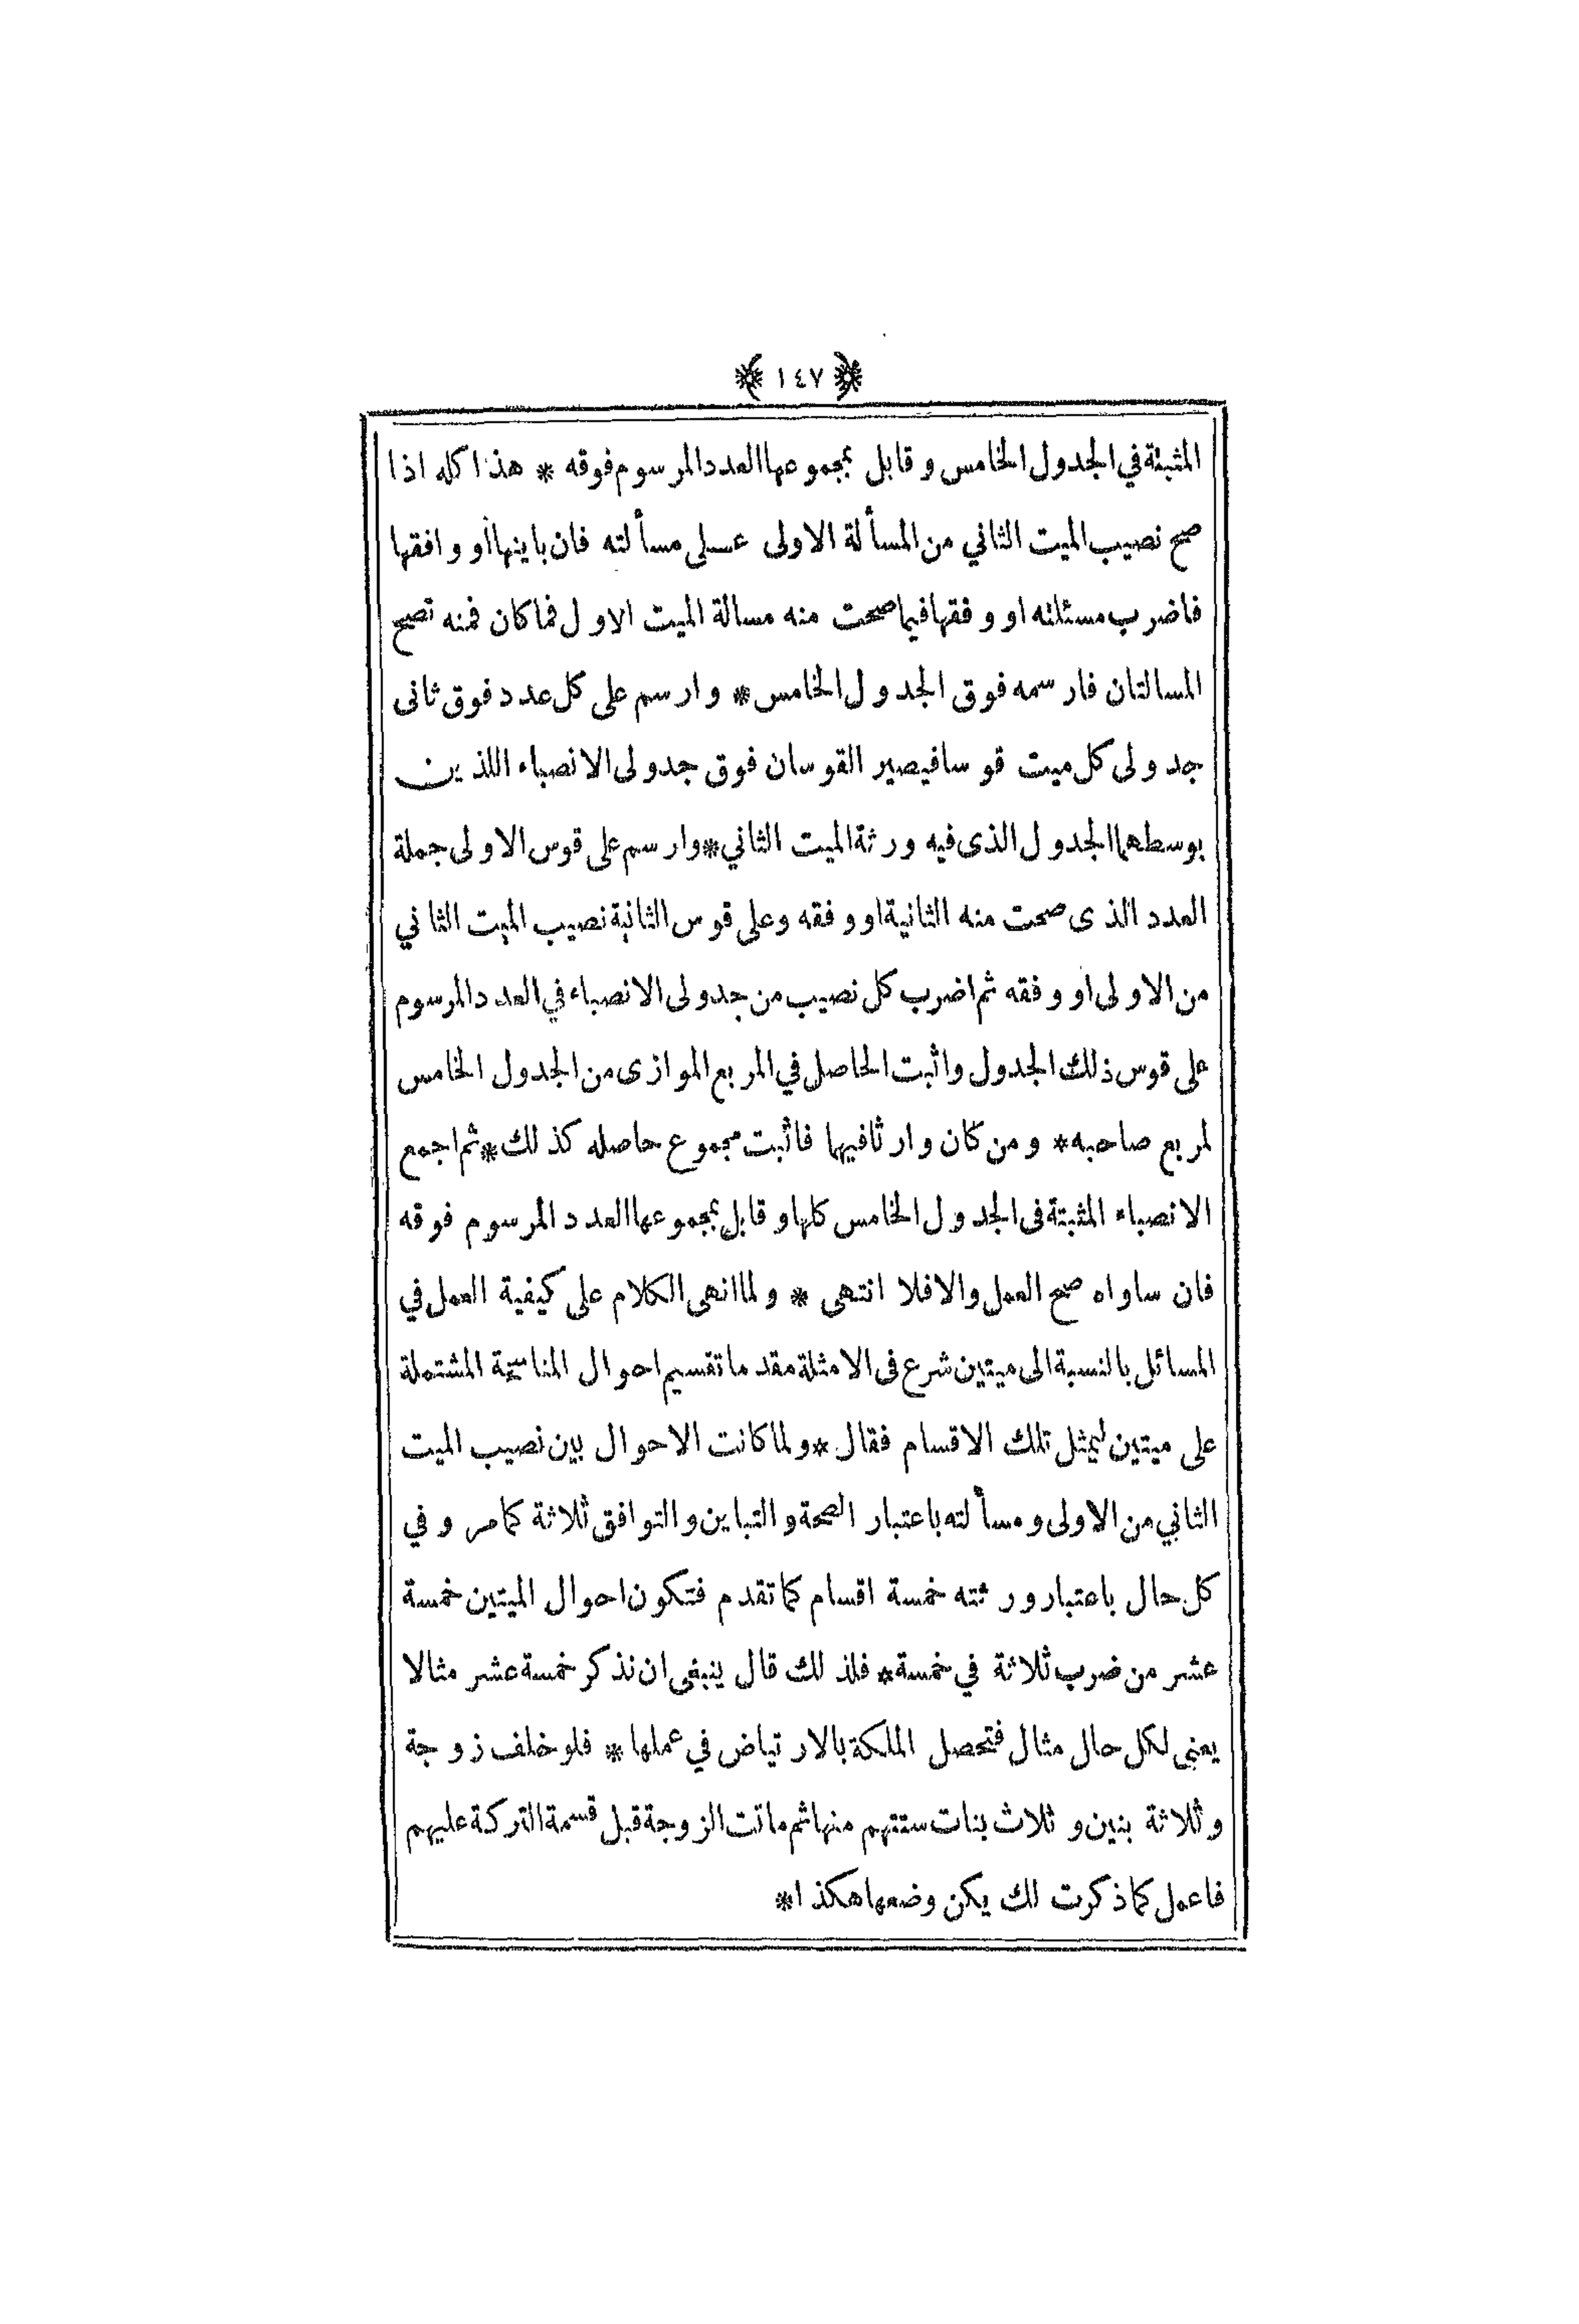 ﴿ ١٤٧ ﴾
المثبتة في الجدول الخامس وقابل بمجموعها العدد المرسوم فوقه * هذا كله اذا
صح نصيب الميت الثاني من المسألة الاولى على مسألته فان باينها أو وافقها
فاضرب مسئلته او وفقها فيما صحت منه مسالة الميت الاول فما كان فمنه تصح
المسالتان فارسمه فوق الجدول الخامس * وارسم على كل عدد فوق ثانى
جدولى كل ميت قوسا فيصير القوسان فوق جدولى الانصباء اللذين
بوسطهما الجدول الذى فيه ورثة الميت الثاني * وارسم على قوس الاولى جملة
العدد الذى صحت منه الثانية او وفقه وعلى قوس الثانية نصيب الميت الثاني
من الاولى أو وفقه ثم اضرب كل نصيب من جدولى الانصباء في العدد المرسوم
على قوس ذلك الجدول واثبت الحاصل في المربع الموازى من الجدول الخامس
لمربع صاحبه * ومن كان وارثا فيها فاثبت مجموع حاصله كذلك * ثم اجمع
الانصباء المثبتة فى الجدول الخامس كلها وقابل بمجموعها العدد المرسوم فوقه
فان ساواه صح العمل والا فلا انتهى * ولما انهى الكلام على كيفية العمل في
المسائل بالنسبة الى ميتين شرع فى الامثلة مقدما تقسيم احوال المناسخة المشتملة
على ميتين ليمثل تلك الاقسام فقال * ولما كانت الاحوال بين نصيب الميت
الثاني من الاولى ومسألته باعتبار الصحة والتباين والتوافق ثلاثة كما مر وفي
كل حال باعتبار ورثته خمسة اقسام كما تقدم فتكون احوال الميتين خمسة
عشر من ضرب ثلاثة في خمسة * فلذلك قال ينبغى ان نذكر خمسة عشر مثالا
يعنى لكل حال مثال فتحصل الملكة بالارتياض في عملها * فلو خلف زوجة
وثلاثة بنين وثلاث بنات ستتهم منها ثم ماتت الزوجة قبل قسمة التركة عليهم
فاعمل كما ذكرت لك يكن وضعها هكذا *